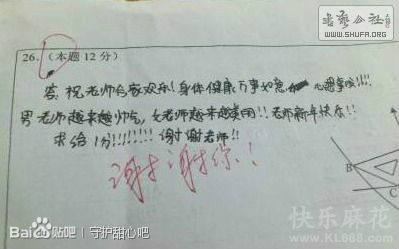 书艺公社
WWW.SHUFA.ORG
26.(本题12分)
答:祝老师合家欢乐!身体健康万事如意 心想事成!!!!
男老师越来越帅气,女老师越来越美丽!!老师新年快乐!!
求给1分!!!!!!!! 谢谢老师!!
谢谢你!!
B
C
Baidu贴吧 | 守护甜心吧
快乐麻花
WWW.KL688.COM